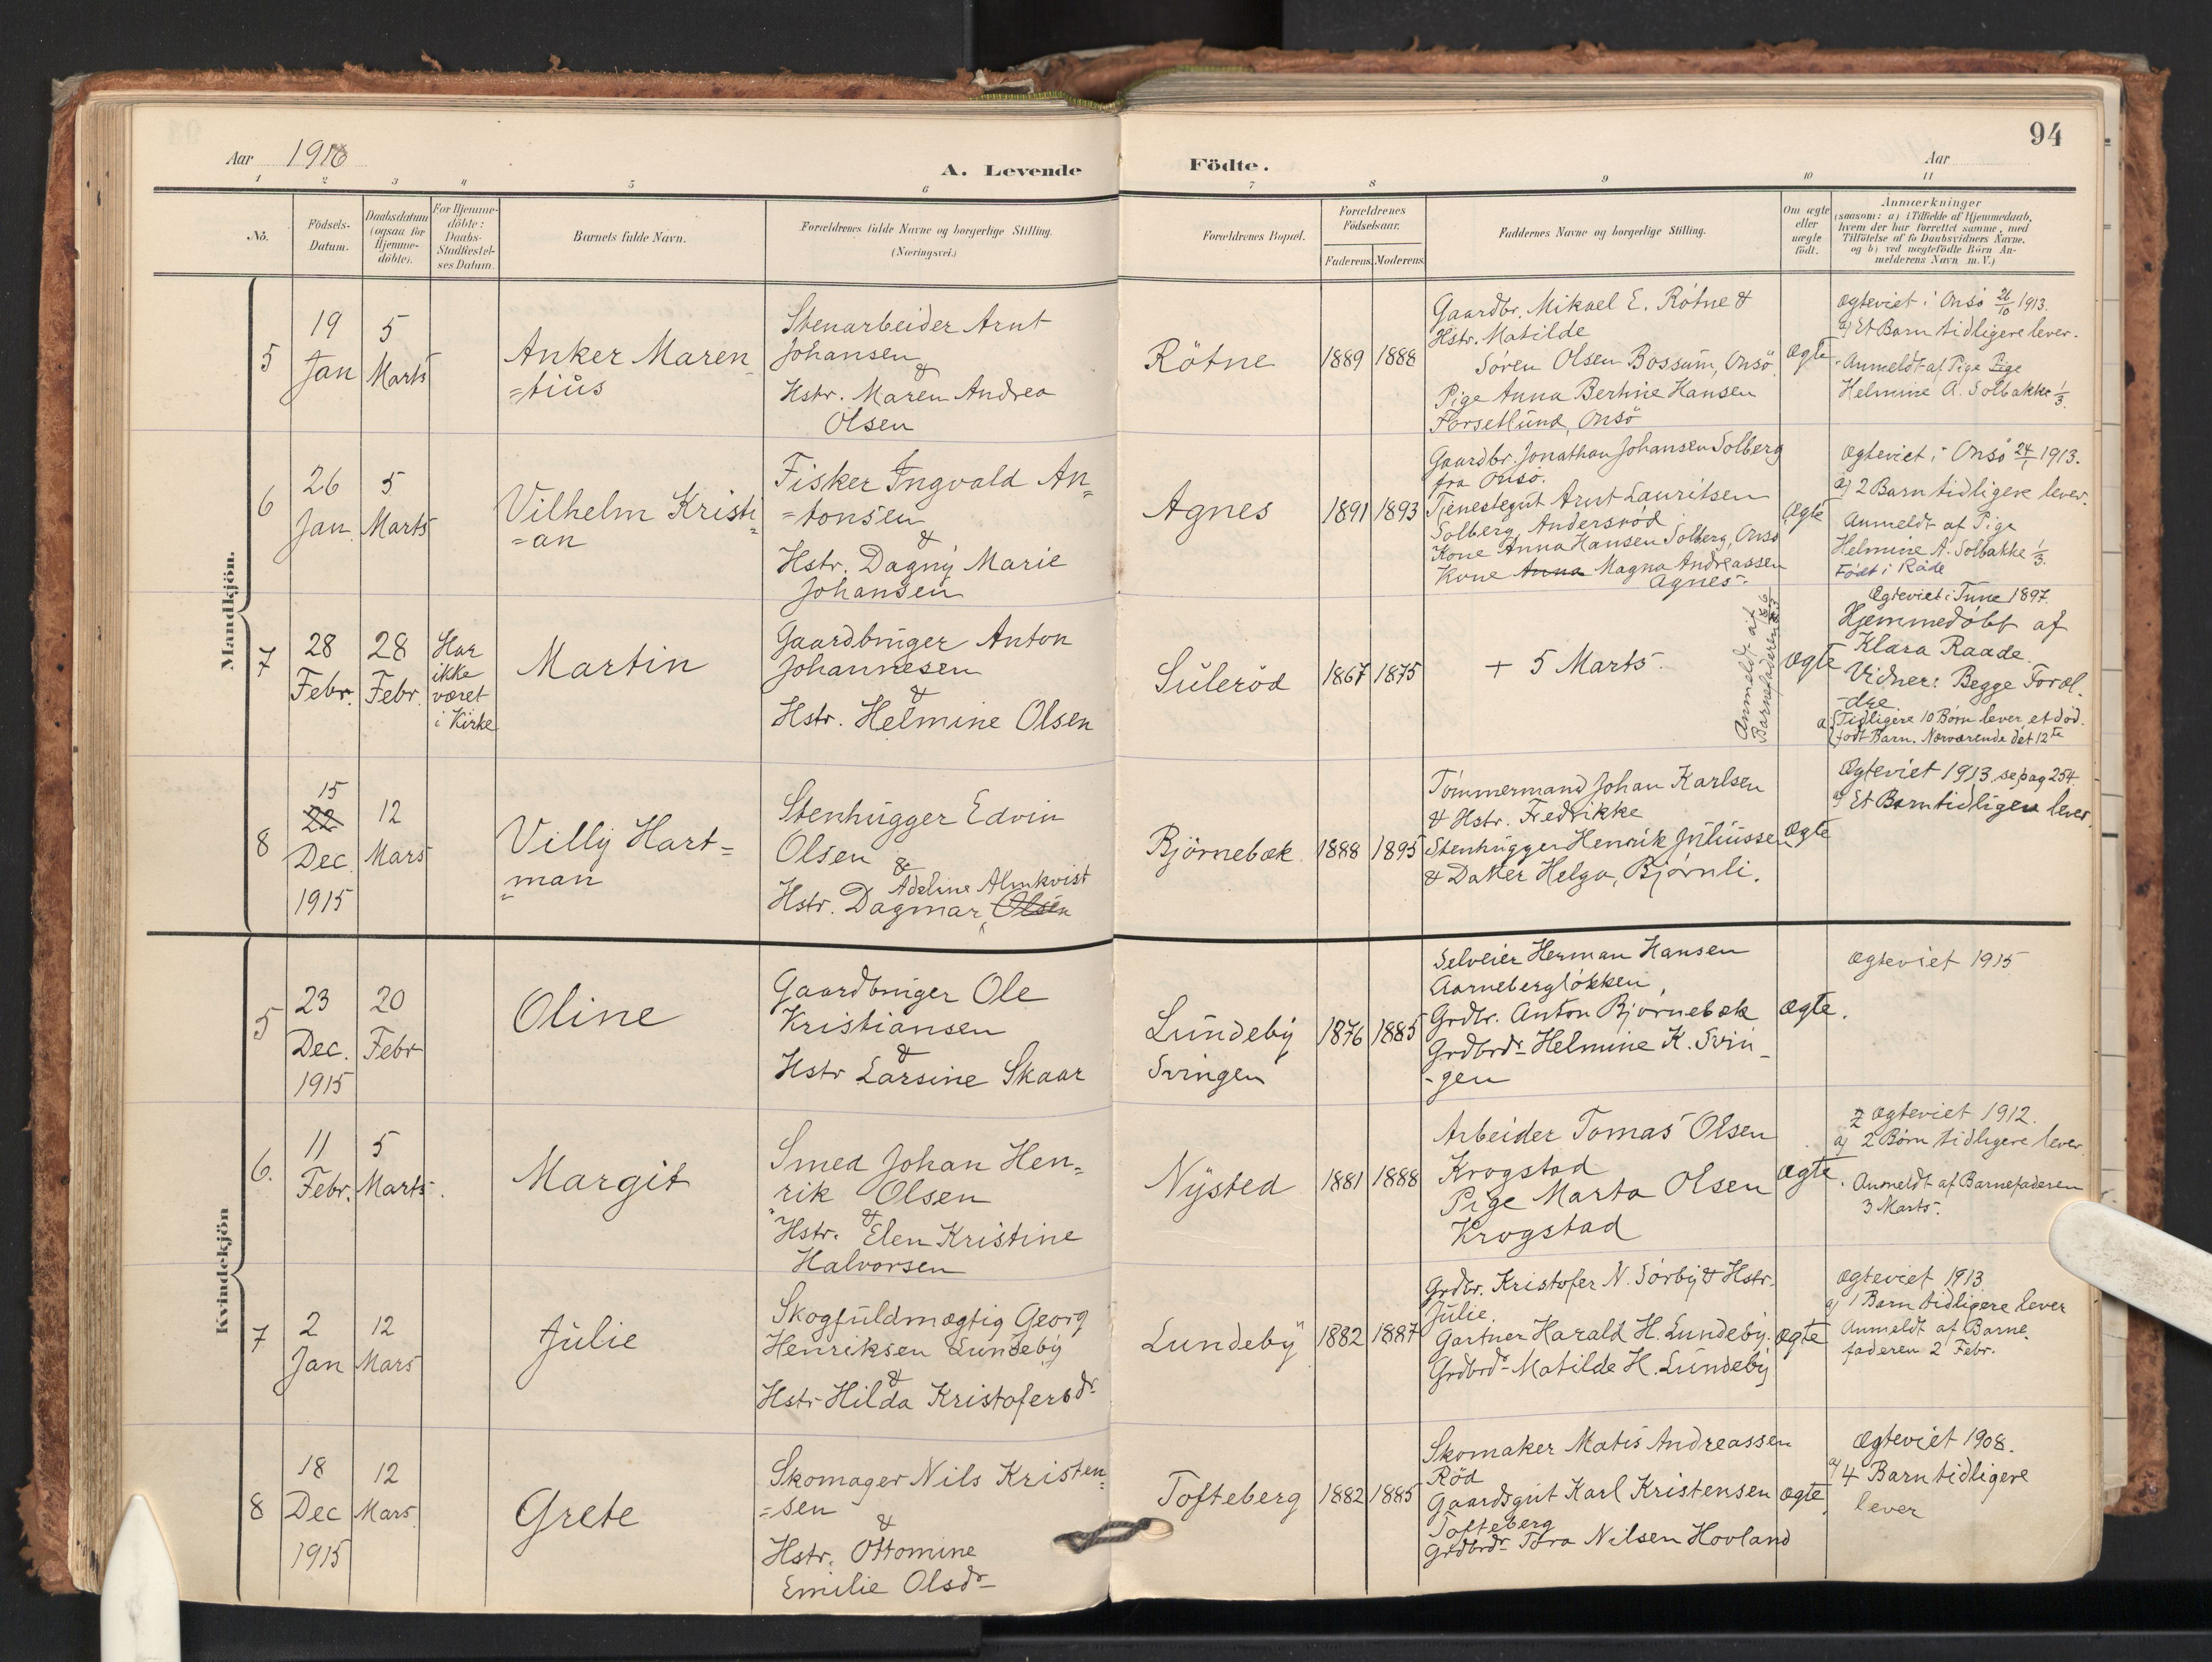 94
Aar 1916
A. Levende Födte.
Aar
1 2 3 4 5 6 7 8 9 10 11
No.
Födsels-
Datum.
Daabsdatum
(ogsaa for
Hjemme-
döbte).
For Hjemme-
döbte:
Daabs-
Stadfæstel-
ses Datum.
Barnets fulde Navn.
Forældrenes fulde Navne og borgerlige Stilling.
(Næringsvei.)
Forældrenes Bopæl.
Forældrenes
Födselsaar.
Faderens. Moderens.
Faddernes Navne og borgerlige Stilling.
Om ægte
eller
uægte
födt.
Anmærkninger
(saasom: a) i Tilfælde af Hjemmedaab,
hvem der har forrettet samme, med
Tilföielse af to Daabsvidners Navne,
og b) ved uægtefödte Börn An-
melderens Navn m. V.)
Mandkjön.
5
19
Jan
5
Marts
Anker Maren
=tius
Stenarbeider Arnt
Johansen
&
Hstr. Maren Andrea
Olsen
Rötne
1889
1888
Gaardbr. Mikael E. Rötne &
Hstr. Matilde
Sören Olsen Bossum, Onsö
Pige Anna Bertine Hansen
Forsetlund, Onsö
ægte
Ægteviet i Onsö 26/10 1913.
a) Et Barn tidligere lever.
Anmeldt af Pige Pige
Helmine A. Solbakke 1/3.
6
26
Jan.
5
Marts
Vilhelm Kristi
=an
Fisker Ingvald An=
=tonsen
&
Hstr. Dagny Marie
Johansen
Agnes
1891
1893
Gaardbr. Jonathan Johansen Solberg
fra Onsö.
Tjenestegut Arnt Lauritsen
Solberg, Andersröd
Kone Anna Hansen Solberg, Onsö
Kone Anna Magna Andreassen
Agnes.
ægte
Ægteviet i Onsö 24/1 1913.
a) 2 Barn tidligere lever.
Anmeldt af Pige
Helmine A. Solbakke 1/3.
Födt i Råde
7
28
Febr.
28
Febr.
Har
ikke
været
i Kirke
Martin
Gaardbruger Anton
Johannesen
&
Hstr. Helmine Olsen
Suleröd
1867
1875
+ 5 Marts.
Anmeldt af
Barnefaderen
ægte
Ægteviet i Tune 1897.
Hjemmedöbt af
Klara Raade.
Vidner: Begge Foræl-
-dre
a) Tidligere 10 Börn lever, et död-
födt Barn. Nærværende det 12te
8
15
22
Dec
1915
12
Mars
Villy Hart=
=man
Stenhugger Edvin
Olsen
&
Adeline Almkvist
Hstr. Dagmar Olsen
Björnebæk
1888
1895
Tömmermand Johan Karlsen
& Hstr. Fredrikke
Stenhugger Henrik Juliussen
& Datter Helga, Björnli.
Ægte
Ægteviet 1913. se pag 254
a) Et Barn tidligere lever.
Kvindekjön
5
23
Dec.
1915
20
Febr
Oline
Gaardbruger Ole
Kristiansen
&
Hstr Larsine Skaar
Lundeby
Svingen
1876
1885
Selveier Herman Hansen
Aarneberglökken,
Grdbr. Anton Björnebæk
Grdbrdr Helmine K. Svin-
-gen
ægte.
Ægteviet 1915
6.
11
Febr.
5
Marts.
Margit
Smed Johan Hen=
rik Olsen
&
Hstr. Elen Kristine
Halvorsen
Nysted
1881
1888
Arbeider Tomas Olsen
Krogstad
Pige Marta Olsen
Krogstad
ægte.
Ægteviet 1912.
a) 2 Börn tidligere lever
Anmeldt af Barnefaderen
3 Marts.
7
2
Jan
12
Mars
Julie
Skogfuldmægtig Georg
Henriksen Lundeby
&
Hstr Hilda Kristofersdr
Lundeby
1882
1887
Grdbr. Kristofer N. Sörby & Hstr.
Julie.
Gartner Harald H. Lundeby.
Grdbrdr Matilde H. Lundeby
ægte
Ægteviet 1913
a) 1 Barn tidligere lever
Anmeldt af Barne-
faderen 2 Febr.
8
18
Dec
1915
12
Mars.
Grete
Skomager Nils Kristen=
=sen
&
Hstr. Ottomine
Emilie Olsdr
Tofteberg
1882
1885
Skomaker Matis Andreassen
Röd
Gaardsgut Karl Kristensen
Tofteberg
Grdbrdr Tora Nilsen Hovland
ægte
Ægteviet 1908.
a) 4 Barn tidligere
lever